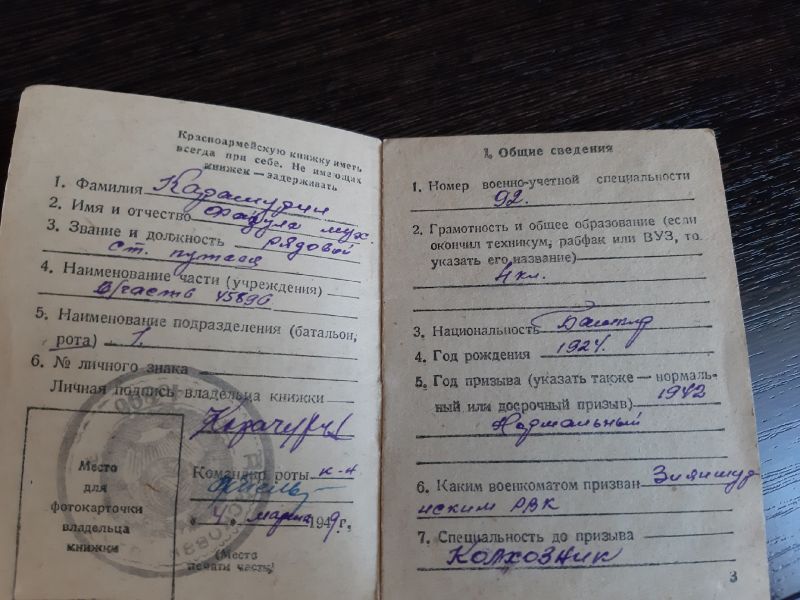 Красноармейскую книжку иметь
всегда при себе. Не имеющих
книжек — задерживать
1. Фамилия
2. Имя и отчество
3. Звание и должность рядовой
ст. путеец
4. Наименование части (учреждения)
в/часть 45896
5. Наименование подразделения (батальон,
рота) 1.
6. № личного знака
Личная подпись владельца книжки
Место
для
фотокарточки
владельца
книжки
Командир роты к-н
4 марта 1949 г.
(Место
печати части)
1. Общие сведения
1. Номер военно-учетной специальности
92.
2. Грамотность и общее образование (если
окончил техникум, рабфак или ВУЗ, то
указать его название)
4 кл.
3. Национальность Башкир
4. Год рождения 1924.
5. Год призыва (указать также — нормаль-
ный или досрочный призыв) 1942
Нормальный
6. Каким военкоматом призван Зианчур
инским РВК
7. Специальность до призыва
Колхозник
3